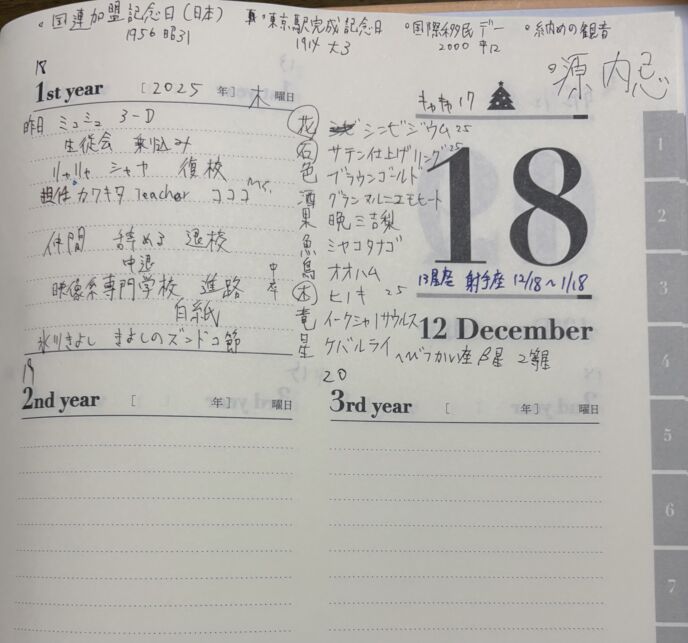 ・国連加盟記念日(日本) ・東京駅完成記念日 ・国際移民デー ・納めの観音
1956 昭31 1914 大3 2000 平12
・源 内忌
18
1st year [2025 年] 木 曜日
昨日 ミュミュ 3-D
生徒会 乗り込み
リャリャ シャヤ 復校
担任 カワキタ Teacher コココ
仲間 辞める 退校
中退
映像系専門学校 進路 中卒
白紙
氷川きよし きよしのズンドコ節
花 シンビジウム 25
石 サテン仕上げリング 25
色 ブラウンゴールド
酒 グランマルニエモヒート
果 晩三吉梨
魚 ミヤコタナゴ
鳥 オオハム
木 ヒノキ 25
竜 イークシャノサウルス
星 ケバルライ へびつかい座β星 2等星
17
18
13星座 射手座 12/18~1/18
12 December
19
2nd year [ 年] 曜日
20
3rd year [ 年] 曜日
1
2
3
4
5
6
7